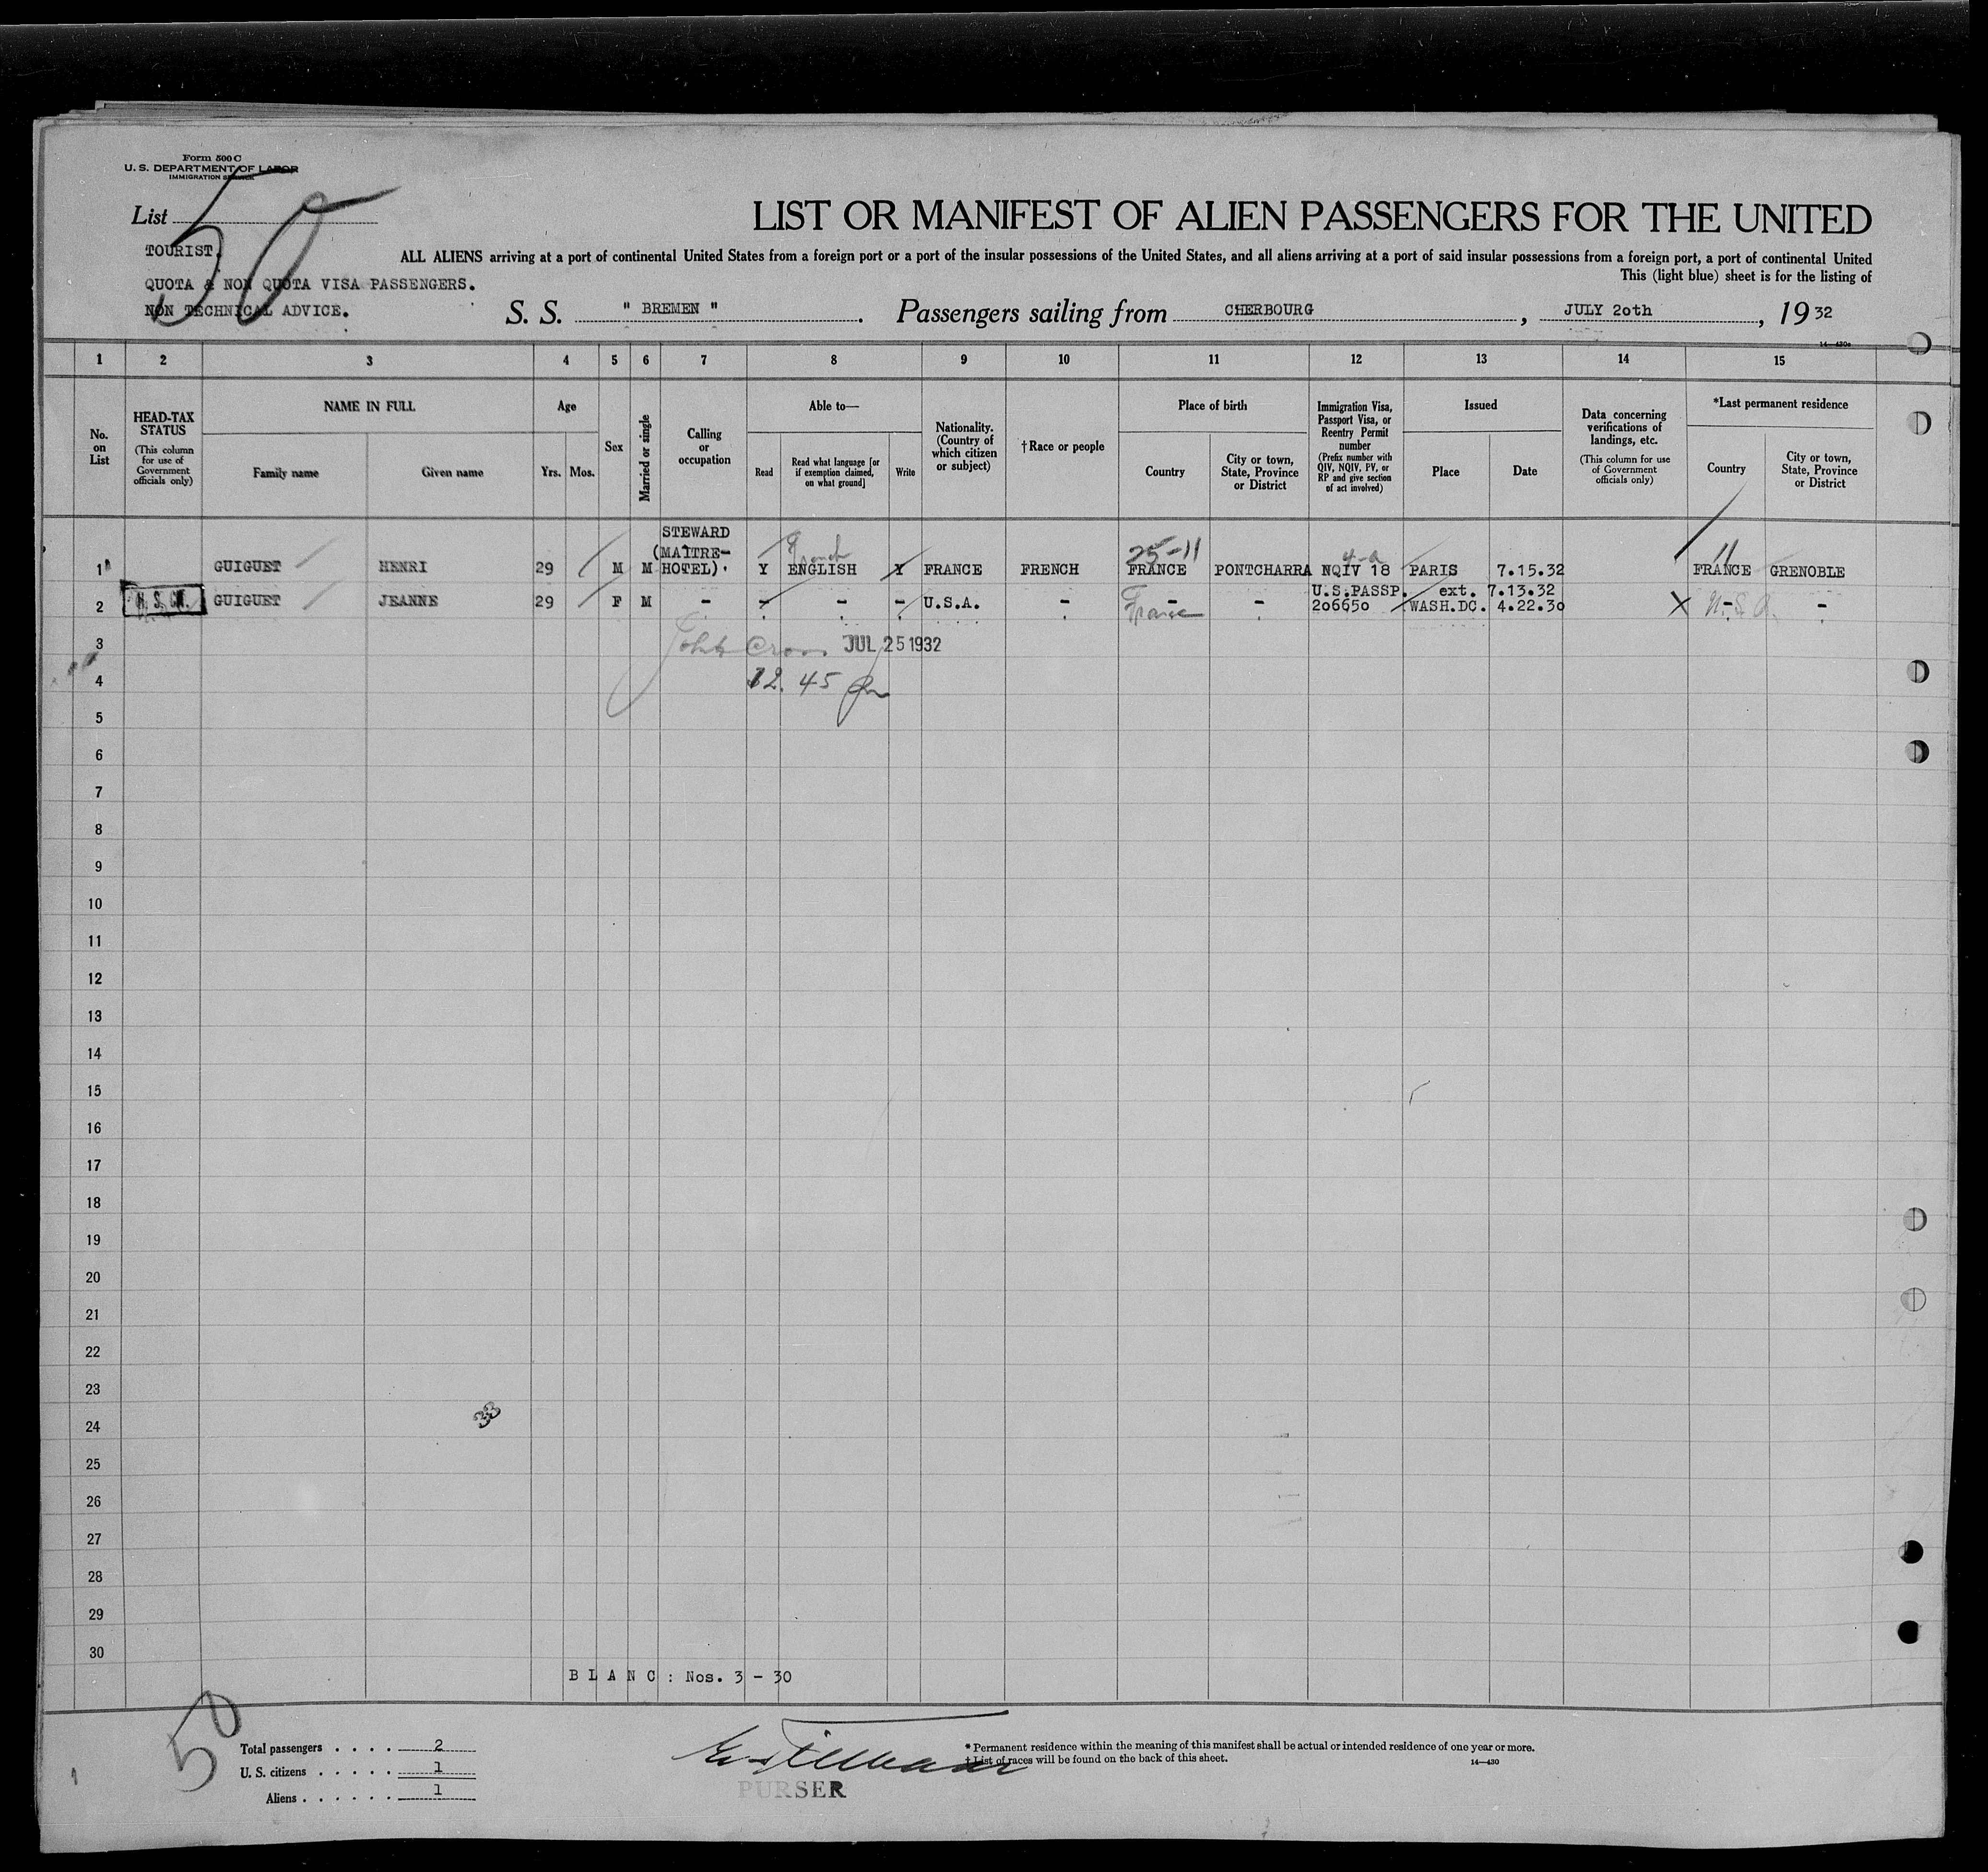 Form 500 C
U. S. DEPARTMENT OF LABOR
IMMIGRATION SERVICE
List 50
LIST OR MANIFEST OF ALIEN PASSENGERS FOR THE UNITED
TOURIST.
ALL ALIENS arriving at a port of continental United States from a foreign port or a port of the insular possessions of the United States, and all aliens arriving at a port of said insular possessions from a foreign port, a port of continental United
QUOTA & NON QUOTA VISA PASSENGERS.
This (light blue) sheet is for the listing of
NON TECHNICAL ADVICE.
S. S. " BREMEN ". Passengers sailing from CHERBOURG, JULY 20th, 19 32
14—430a
1 2 3 4 5 6 7 8 9 10 11 12 13 14 15
No. on List
HEAD-TAX STATUS
(This column for use of Government officials only)
NAME IN FULL
Family name
Given name
Age
Yrs. Mos.
Sex
Married or single
Calling or occupation
Able to—
Read
Read what language [or if exemption claimed, on what ground]
Write
Nationality. (Country of which citizen or subject)
†Race or people
Place of birth
Country
City or town, State, Province or District
Immigration Visa, Passport Visa, or Reentry Permit number
(Prefix number with QIV, NQIV, PV, or RP and give section of act involved)
Issued
Place
Date
Data concerning verifications of landings, etc.
(This column for use of Government officials only)
*Last permanent residence
Country
City or town, State, Province or District
STEWARD
(MAITRE- French 25-11 4-a
1 GUIGUET HENRI 29 M M HOTEL). Y ENGLISH Y FRANCE FRENCH FRANCE PONTCHARRA NQIV 18 PARIS 7.15.32 FRANCE GRENOBLE
U.S.PASSP. ext. 7.13.32
2 GUIGUET JEANNE 29 F M - - - - U.S.A. - - France - 206650 WASH.DC. 4.22.30 X U.S.A. -
3 JUL 25 1932
4 12.45 pm
5
6
7
8
9
10
11
12
13
14
15
16
17
18
19
20
21
22
23
33
24
25
26
27
28
29
30
B L A N C : Nos. 3 - 30
50
Total passengers . . . . 2
U. S. citizens . . . . . 1
Aliens . . . . . . 1
PURSER
* Permanent residence within the meaning of this manifest shall be actual or intended residence of one year or more.
† List of races will be found on the back of this sheet.
14—430